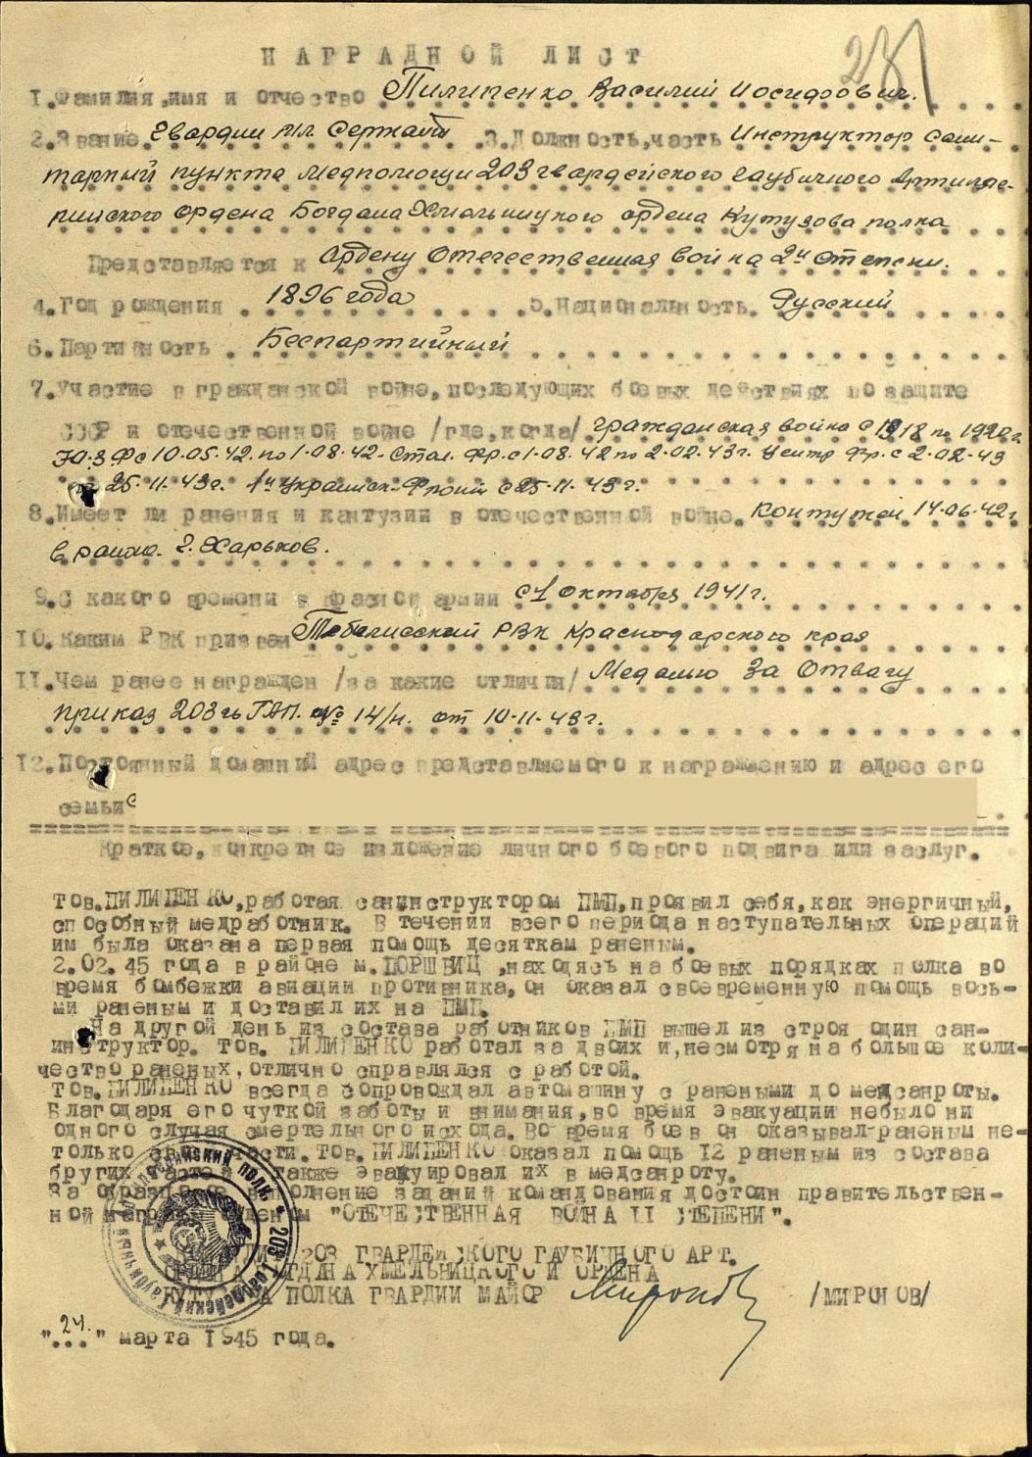 231
НАГРАДНОЙ ЛИСТ
1.Фамилия,имя и отчество Пилипенко Василий Иосифович.
2.Звание. Гвардии мл. Сержант .3.Должность,часть Инструктор сани-
тарный пункта медпомощи 203 гвардейского гаубичного Артилле-
рийского ордена Богдана Хмельницкого ордена Кутузова полка
Представляется к Ордену Отечественная война 2й степени.
4.Год рождения 1896 года .5.Национальность. Русский
6.Партийность Беспартийный
7.Участие в гражданской войне,последующих боевых действиях по защите
СССР и отечественной войне /где,когда/ Гражданская война с 1918 по 1920г.
Ю-З Ф с 10.05.42. по 1.08.42. Стал. Фр. с 1.08.42 по 2.02.43г. Центр Фр. с 2.02.43
по 25.11.43г. 1й Украинск. Фронт с 25.11.43г.
8.Имеет ли ранения и кантузии в отечественной войне. Контужен 14.06.42г
в районе г. Харьков.
9.С какого времени в красной армии с 1 октября 1941г.
10.Каким РВК призван РВК Краснодарского края
11.Чем ранее награжден /за какие отличия/ Медалью За Отвагу
приказ 203 гв ГАП. № 14/н. от 10.11.43г.
12.Постоянный домашний адрес представляемого к награждению и адрес его
семьи
Краткое,конкретное изложение личного боевого подвига или заслуг.
Тов.ПИЛИПЕНКО,работая санинструктором ПМП,проявил себя,как энергичный,
способный медработник. В течении всего периода наступательных операций
им была оказана первая помощь десяткам раненым.
2.02.45 года в районе м.ПОРШВИЦ ,находясь на боевых порядках полка во
время бомбежки авиации противника,он оказал своевременную помощь вось-
ми раненым и доставил их на ПМП.
На другой день из состава работников ПМП вышел из строя один сан-
инструктор. Тов. ПИЛИПЕНКО работал за двоих и,несмотря на большое коли-
чество раненых,отлично справлялся с работой.
Тов.ПИЛИПЕНКО всегда сопровождал автомашину с ранеными до медсанроты.
Благодаря его чуткой заботы и внимания,во время эвакуации небыло ни
одного случая смертельного исхода.Во время боев он оказывал раненым не-
только своей части.Тов.ПИЛИПЕНКО оказал помощь 12 раненым из состава
других частей а также эвакуировал их в медсанроту.
За образцовое выполнение заданий командования достоин правительствен-
ной награды орденом "ОТЕЧЕСТВЕННАЯ ВОЙНА II СТЕПЕНИ".
203 ГВАРДЕЙСКОГО ГАУБИЧНОГО АРТ.
ОРДЕНА БОГДАНА ХМЕЛЬНИЦКОГО И ОРДЕНА
КУТУЗОВА ПОЛКА ГВАРДИИ МАЙОР Миронов /МИРОНОВ/
"24." марта 1945 года.